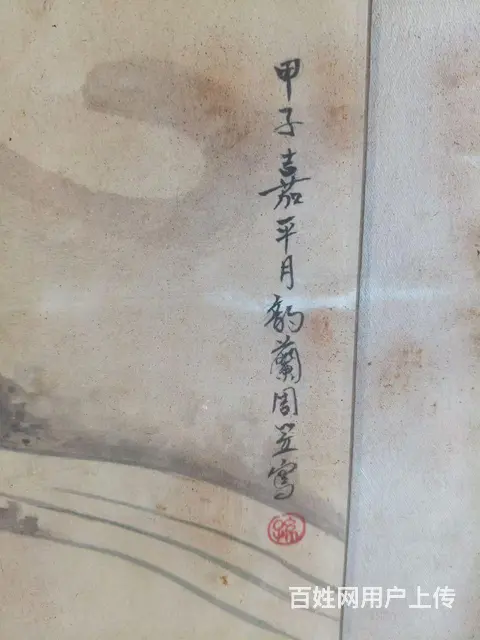 甲子嘉平月韵蘭周笠寫
百姓网用户上传